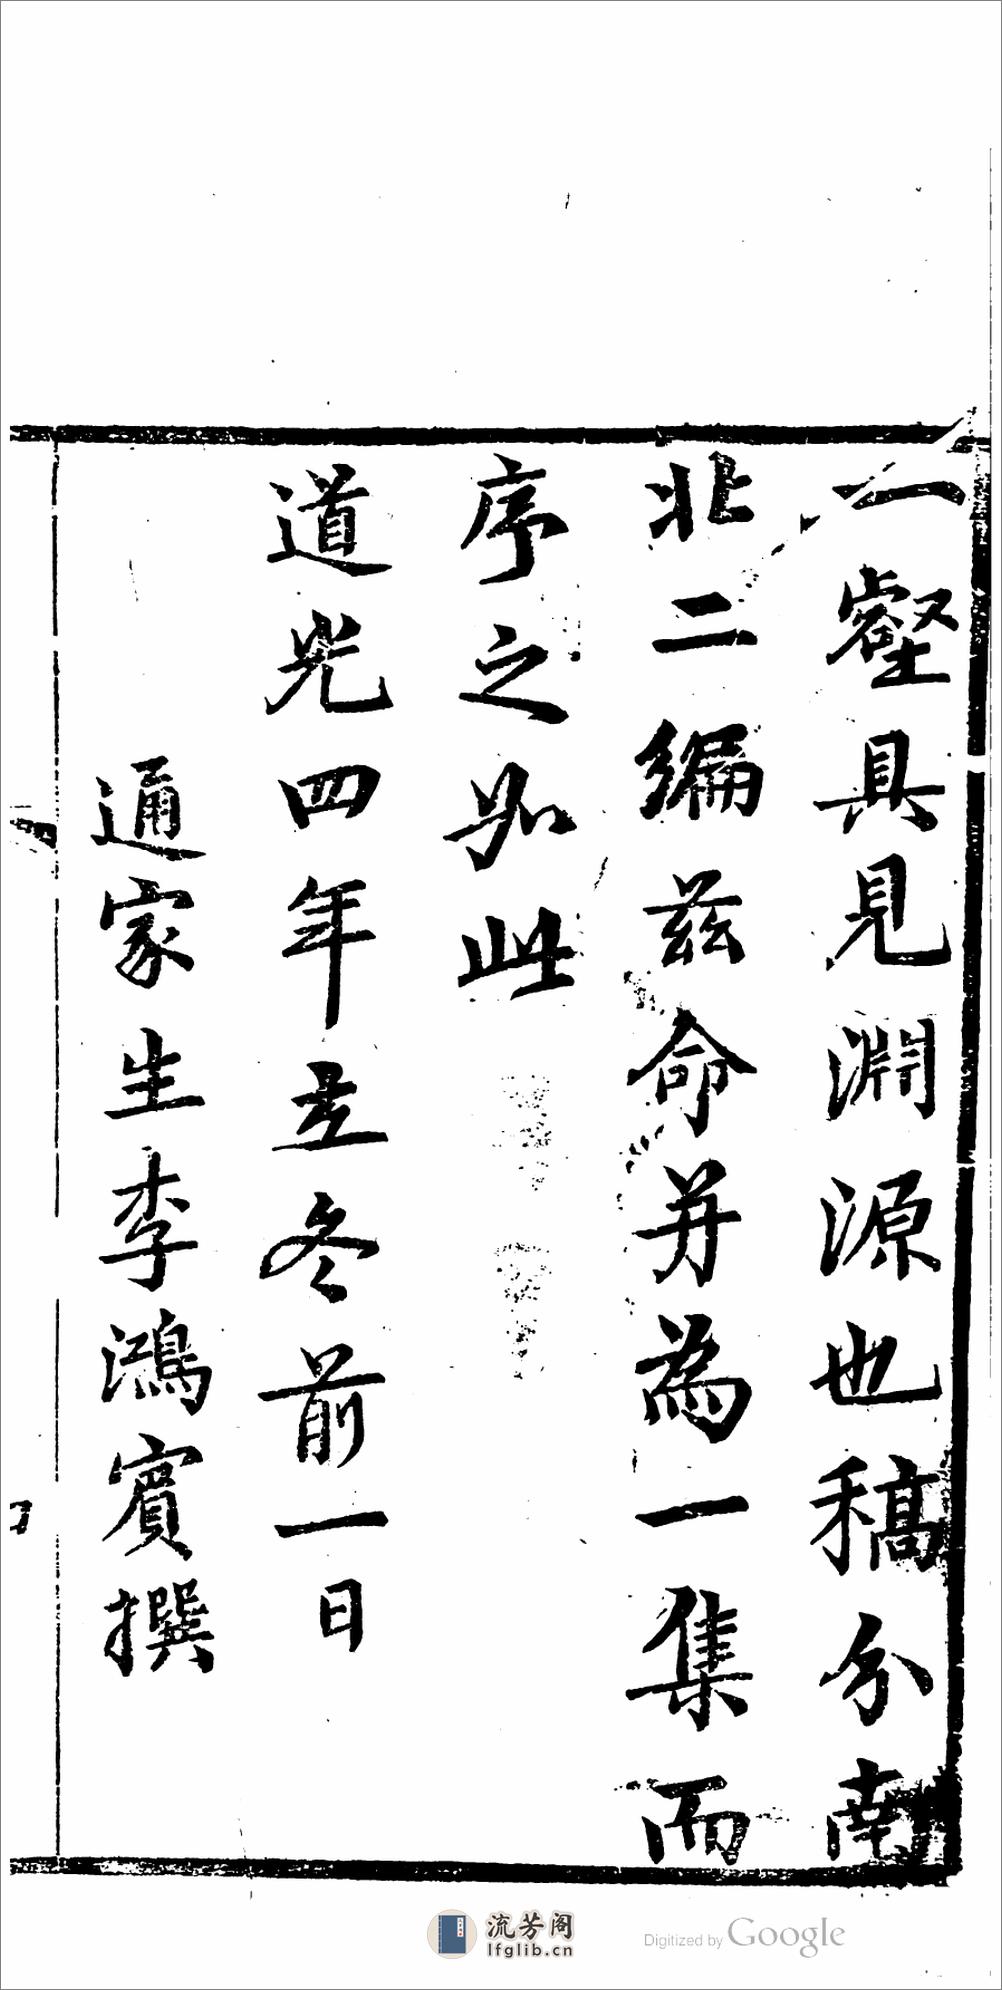 一壑具見淵源也稿分南
北二編茲命并為一集而
序之如此
道光四年立冬前一日
通家生李鴻賓撰
流芳阁
lfglib.cn
Digitized by Google